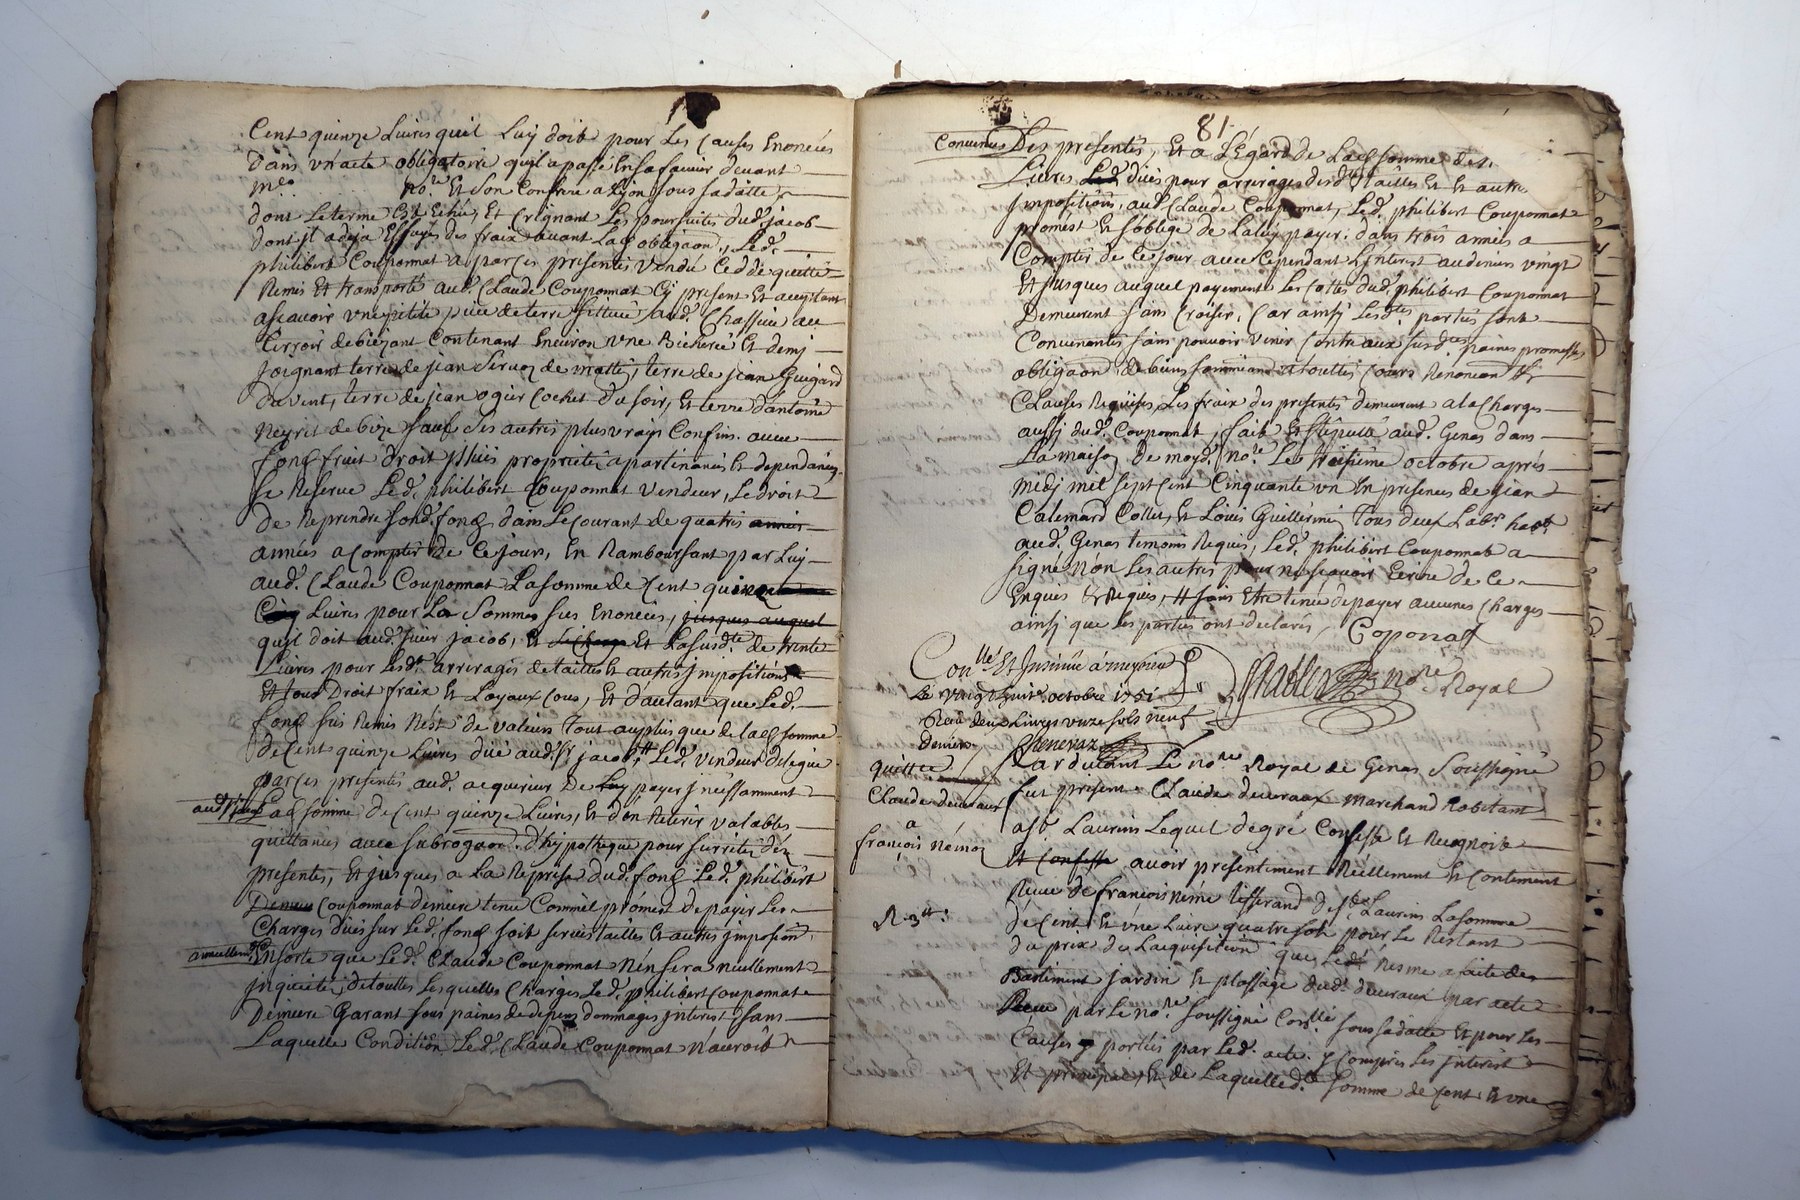 Cent quinze Livres quil Luy doit pour Les Causes Enoncées
dans un acte obligatoire quil a passé En sa faveur devant
me no.re Et son Confrere a Lyon sous sa datte
dont Le terme Est Echu, Et Crignant Les poursuites dud. jacob
dont jl a deja Essuyé des fraix avant Lad obligaon, Led.
philibert Couponnat a par ces presentes vendu Ceddé quitté
Remis Et transporté aud. Claude Couponnat Cy present Et acceptant
ascavoir une petite piece de terre sittuée aud. Chassieu au
Terroir de biezant Contenant Environ une Bicherée Et demj
joignant terre de jean Servoz de matin, terre de jean Guigard
du vent, terre de jean ogier Cochet du soir, Et terre dantoine
Neyret de bize sauf Ses autres plus vrays Confins avec
fong fruit droit jssues proprieté apartenances Et dependances
se Reserve Led. philibert Couponnat vendeur, Le droit
De Reprendre Sond. fong dans Le Courant de quatres annees
années a Compter de Ce jour, En Remboursant par Luy
aud. Claude Couponnat La somme de Cent quinze
Livres pour La Somme sus Enoncées, jusques auquel
quil doit aud. sieur jacob, Et Et La susd.te de trente
Livres pour Lesd. arreragés de tailles Et autres jmpositions
Et tous Droit fraix Et Loyaux Cous, Et dautant que Led.
fong sus Remis N'est de valeur Tout auplus que de lad somme
de Cent quinze Livres due aud. Sr jacob, Led. vendeur delegue
par ces presentes aud. acquereur De Luy payer jncessamment
aud sieur Lad somme de Cent quinze Livres, Et d'en Retirer valables
quittances avec subrogaon d'hypotheque pour surreté des
presentes, Et jusques a La Reprise dud. fong Led. philibert
Demeure Couponnat demeure tenu Comme il promest de payer Les
Charges dues sur Led. fong soit servis tailles Et autres jmposion
annuellem.t En sorte que Led. Claude Couponnat N'en sera nullement
jnquieté, de touttes Les quelles Charges Led. philibert Couponnat
Demeure Garant sous paines de depens dommages jnterest, sans
Laquelle Condition Led. Claude Couponnat N'auroit
81
Convenu Des presentes, Et a L'Egard de Lad somme de
Livres Led. dues pour arrerages desd. tailles Et Et autres
jmpositions, aud Claude Couponnat, Led. philibert Couponnat
promest Et s'oblige de La luy payer dans trois années a
Compter de Ce jour avec Cependant L'jnterest au denier vingt
Et jusques auquel payement Les Cottes dud. philibert Couponnat
Demeurent sans Croiser. Car ainsy Lesd.tes parties sont
Convenantes sans pouvoir venir Contre aux susd.tes paines promesses
obligaon de biens Et touttes Cours Renoncian Et
Clauses Requises, Les fraix des presentes demeurent a la Charges
aussi dud. Couponnat, fait Et stipullé aud. Genas dans
La maison de moyd. No.re Le troisieme octobre aprés
midj mil sept Cent Cinquante un En presences de jean
Calemard Collet, Et Louis Guillermin Tous deux Lab.rs hab.ts
aud. Genas temoins Requis, Led. philibert Couponnat a
signé Nón Les autres pour ne scavoir Ecrire de Ce
Enquis Et Requis, # sans Etre tenu de payer aucunes Charges
ainsj que Les parties ont declarés, Coponat
Con.llé Et Jnsinüé a meyzieu
Le vingt huit.e octobre 1751
Receu deux Livres onze sols neuf
deniers Chenevaz
no.re Royal
quittce
Claude deveraux
a
françois Némoz
R. 3 tt:
Par devant Le no.re Royal de Genas Soussigné
fut present Claude deveraux Marchand habitant
a St. Laurens Lequel de gré Confesse Et Recognoit
Et Confesse avoir presentement Réellement Et Contement
Receu de françois Néme Tisserand dud. St. Laurens La somme
de Cent Et une Livre quatre sols pour Le Restant
du prix de L'acquisition que Led. Nesme a faite des
Bastiment jardin Et plassage dud. deveraux par acte
Receu par Le no.re soussigné Con.llé sous sa datte Et pour Les
Causes y portées par Led. acte. y Compris Les jnterest
Et principal, Et de Laquelled.te somme de Cent Et une